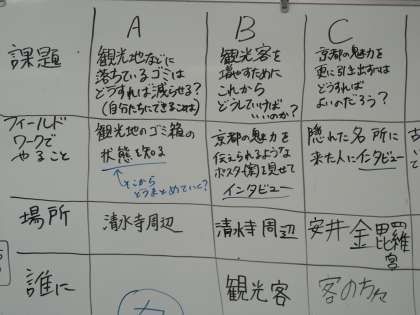 A
B
C
課題
観光地などに
落ちているゴミは
どうすれば減らせる?
(自分たちにできることは)
観光客を
増やすために
これから
どうしていけば
いいのか?
京都の魅力を
更に引き出すには
どうすれば
よいのだろう?
フィールド
ワークで
やること
観光地のゴミ箱の
状態を知る
そこから
どうまとめていく?
京都の魅力を
伝えられるような
ポスター(案)を見せて
インタビュー
隠れた名所に
来た人にインタビュー
場所
清水寺周辺
清水寺周辺
安井金毘羅宮
誰に
観光客
客の方々